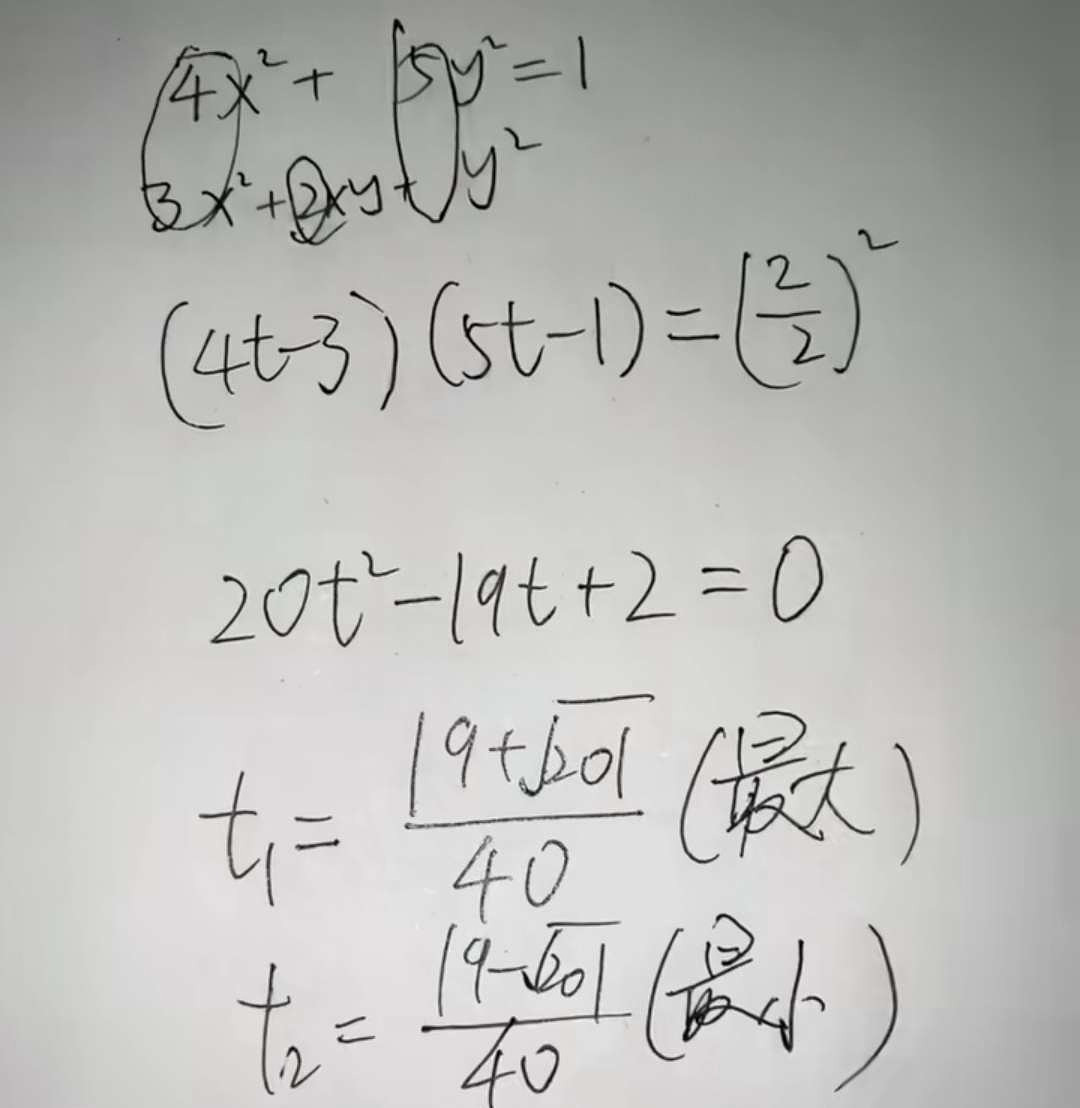 4x²+5y²=1
3x²+2xy+y²
(4t-3)(5t-1)=(2/2)²
20t²-19t+2=0
t₁=(19+√201)/40(最大)
t₂=(19-√201)/40(最小)